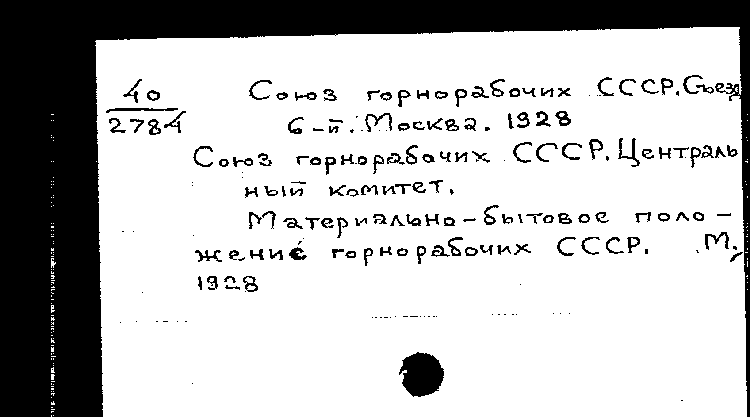 40 Союз горнорабочих СССР. Съезд
2784 6-й. Москва. 1928
Союз горнорабочих СССР. Централь
ный комитет.
Материально-бытовое поло-
жение горнорабочих СССР. М.,
1928